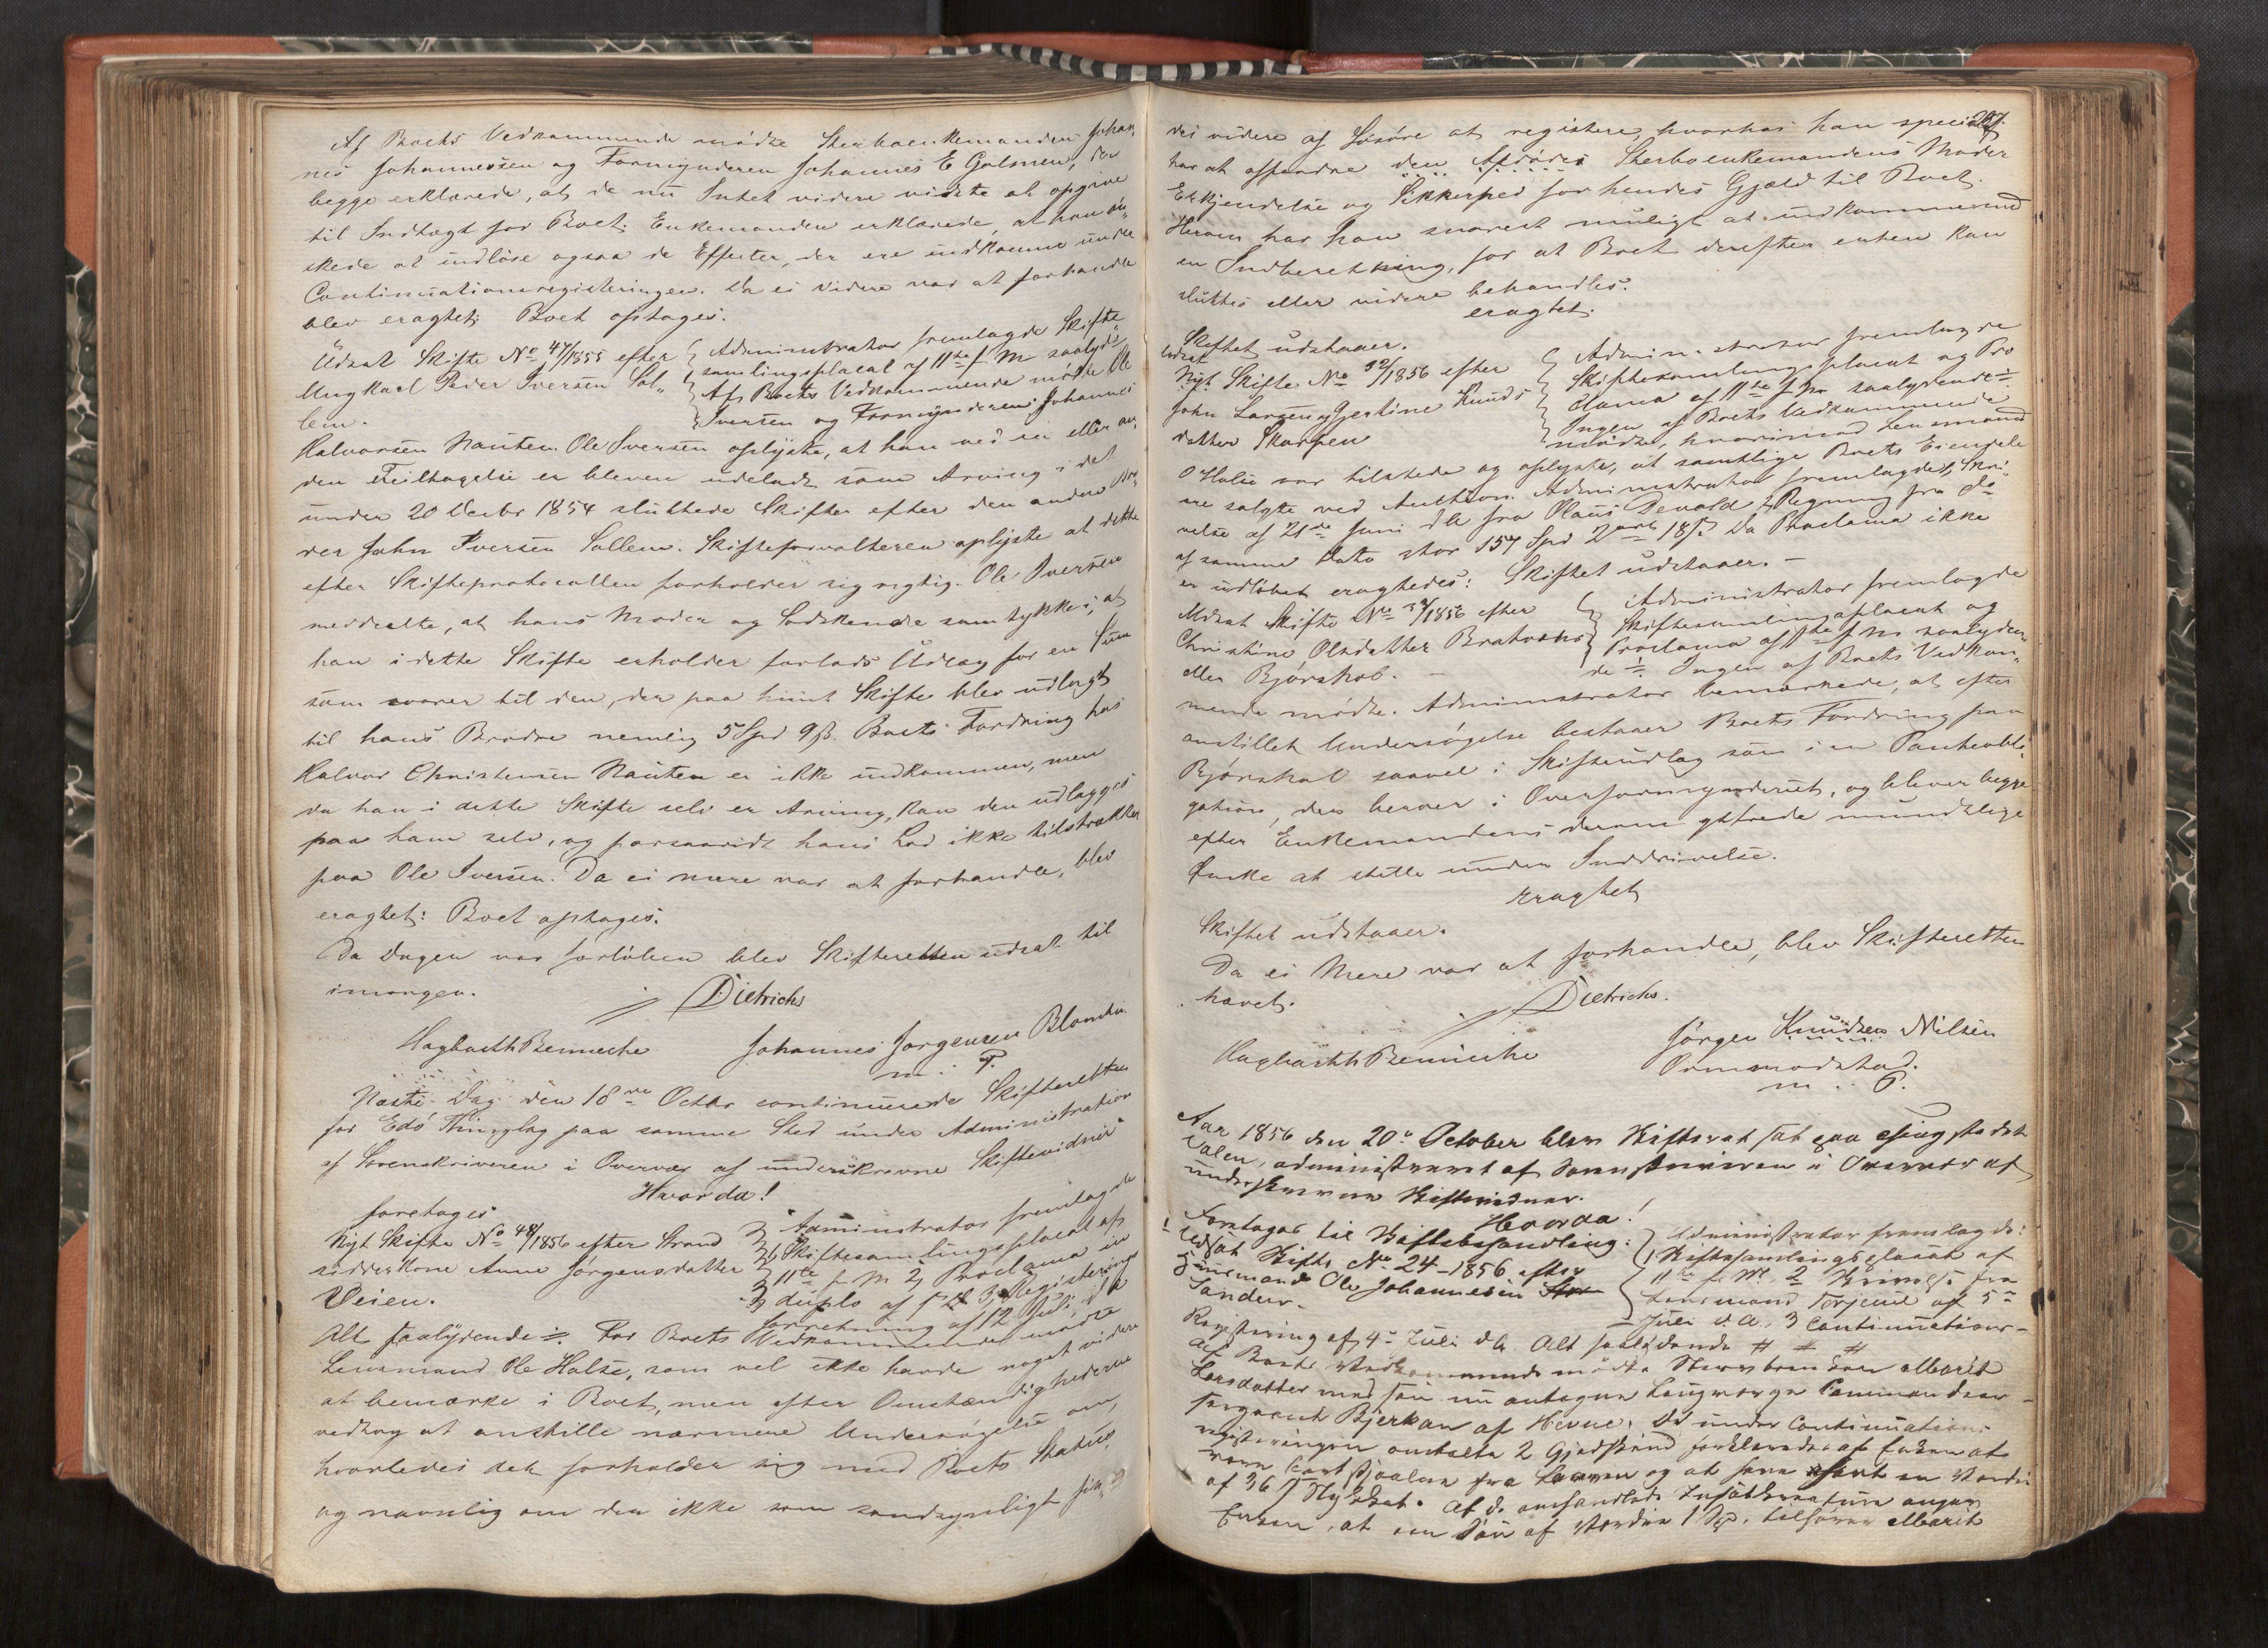 Af Boets Vedkommende mødte Sterboenkemanden Johan„
nes Johannessen og Formynderen Johannes E Golmen, der
begge erklærede, at de nu Intet videre vidste at opgive
til Indtægt for Boet. Enkemanden erklærede, at han øn„
skede at indløse ogsaa de Effecter, der ere indkomne under
Continuationsregisteringen. Da ei videre var at forhandle
blev eragtet: Boet optages.
Udsat Skifte No 47/1855 efter
Ungkarl Peder Iversen Sol„
lem.
Administrator fremlagde Skifte
samlingsplacat af 11te f M saalyd„
Af Boets Vedkommende mødte Ole
Iversen og Formynderen Johannes
Halvorsen Nauten. Ole Iversen oplyste, at han ved en eller an„
den Feiltagelse er bleven udeladt som Arving i det
under 20 Decbr 1854 sluttede Skifte efter den anden Bro„
der John Iversen Sollem. Skifteforvalteren oplyste at dette
efter Skifteprotocollen forholder sig rigtig. Ole Iversen
meddeelte, at hans Moder og Sødskende samtykke i, at
han i dette Skifte erholder forlods Udlæg for en Sum
som svarer til den, der paa hiint Skifte blev udlagt
til hans Brødre nemlig 5 Spd 9 ß. Boets Fordring hos
Halvor Christensen Nauten er ikke indkommen, men
da han i dette Skifte selv er Arving, kan den udlægges
paa ham selv, og forsaavidt hans Lod ikke tilstrækker
paa Ole Iversen. Da ei mere var at forhandle, blev
eragtet: Boet optages.
Da Dagen var forløben blev Skifteretten udsat til
imorgen.
Dietrichs
Hagbarth Bennecke Johannes Jørgensen
m. P.
Næste Dag den 18de Octbr continuerede Skifteretten
for Edø Thinglag paa samme Sted under Administration
af Sorenskriveren i Overvær af underskrevne Skiftevidner
Hvorda!
foretages
Nyt Skifte No 48/1856 efter Strand
sidderkone Anne Jørgensdatter
Veien.
Administrator fremlagde
Skiftesamlingsplacat af
11te f M 2, Proclama in
duplo af 3, Registerings
forretning af 12 Juli d A
Alt saalydende. For Boets Vedkommende mødte
Lensmand Ole Halse, som vel ikke havde noget videre
at bemærke i Boet, men efter Omstændighederne
vedtog at anstille nærmere Undersøgelse om,
hvorledes det forholder sig med Boets Status
og navnlig om der ikke som sandsynligt fin„
267.
des videre af Løsøre at registere, hvorhos han specielt
har at affordre den Afdødes Sterboenkemandens Moder
Erkjendelse og Sikkerhed for hendes Gjæld til Boet.
Herom har han snarest muligt at indkomme med
en Indberetning, for at Boet derefter enten kan
sluttes eller videre behandles.
eragtet:
Skiftet udstaaer.
Udsat
Nyt Skifte No 50/1856 efter
John Larsen og Gjertine Knuds
datter Skarpen
Administrator fremlagde
Skiftesamlingsplacat og Pro
clama af 11te f M saalydende
Ingen af Boets Vedkommende
mødte, hvorimod Lensmand
O Halse var tilstede og oplyste, at samtlige Boets Eiendele
ere solgte ved Auction. Administrator fremlagde 1, Skri„
velse af 21de Juni d A fra Claus Devold 2, Regning fra do
af samme Dato stor 154 Spd 2 ort 18 ß. Da Proclama ikke
er udløbet eragtedes: Skiftet udstaaer.
Udsat Skifte No /1856 efter
Christine Olsdatter Bratvær
eller Bjørshol.
Administrator fremlagde
Skiftesamlingsplacat og
Proclama af 11te f M saalyden„
de. Ingen af Boets Vedkom„
mende mødte. Administrator bemærkede, at efter
anstillet Undersøgelse bestaaer Boets Fordring paa
Bjørshol saavel i Skifteudlæg som i en Pantobli„
gation, der beroer i Overformynderiet, og blever begge
efter Enkemandens derom yttrede mundtlige
Ønske at stille under Inddrivelse.
Eragtet
Skiftet udstaaer.
Da ei Mere var at forhandle, blev Skifteretten
hævet.
Dietrichs.
Hagbarth Bennecke Jørgen Knudsen Nilsen
Ormmodstad.
m. P.
Aar 1856 den 20de October blev Skifteret sat paa Thingstedet
Valen, administreret af Sorenskriveren i Overvær af
underskrevne Skiftevidner.
Hvorda!
Foretages til Skiftebehandling:
Udsat Skifte No 24-1856 efter
Huusmand Ole Johannesen
Sandvr.
Administrator fremlagde:
1 Skiftesamlingsplacat af
11te f. M. 2 Skrivelse fra
Lensmand af 5te
Juli d. A., 3 Continuations-
Registering af 4de Juli d A. Alt saalydende
Af Boets Vedkommende mødte Sterboenken Marit
Larsdatter med sin nu antagne Laugværge Commandeer
sergeant Bjerkan af Hevne. De under Continuations
registeringen anførte 2 Gjedskind forklarede Enken at
være bortstjaalen fra Laaven og at have havt en Værdi
af 36 ß Stykket. Af de omhandlede angav
Enken, at een Søu af Værdie 1 Spd. tilhører Marit